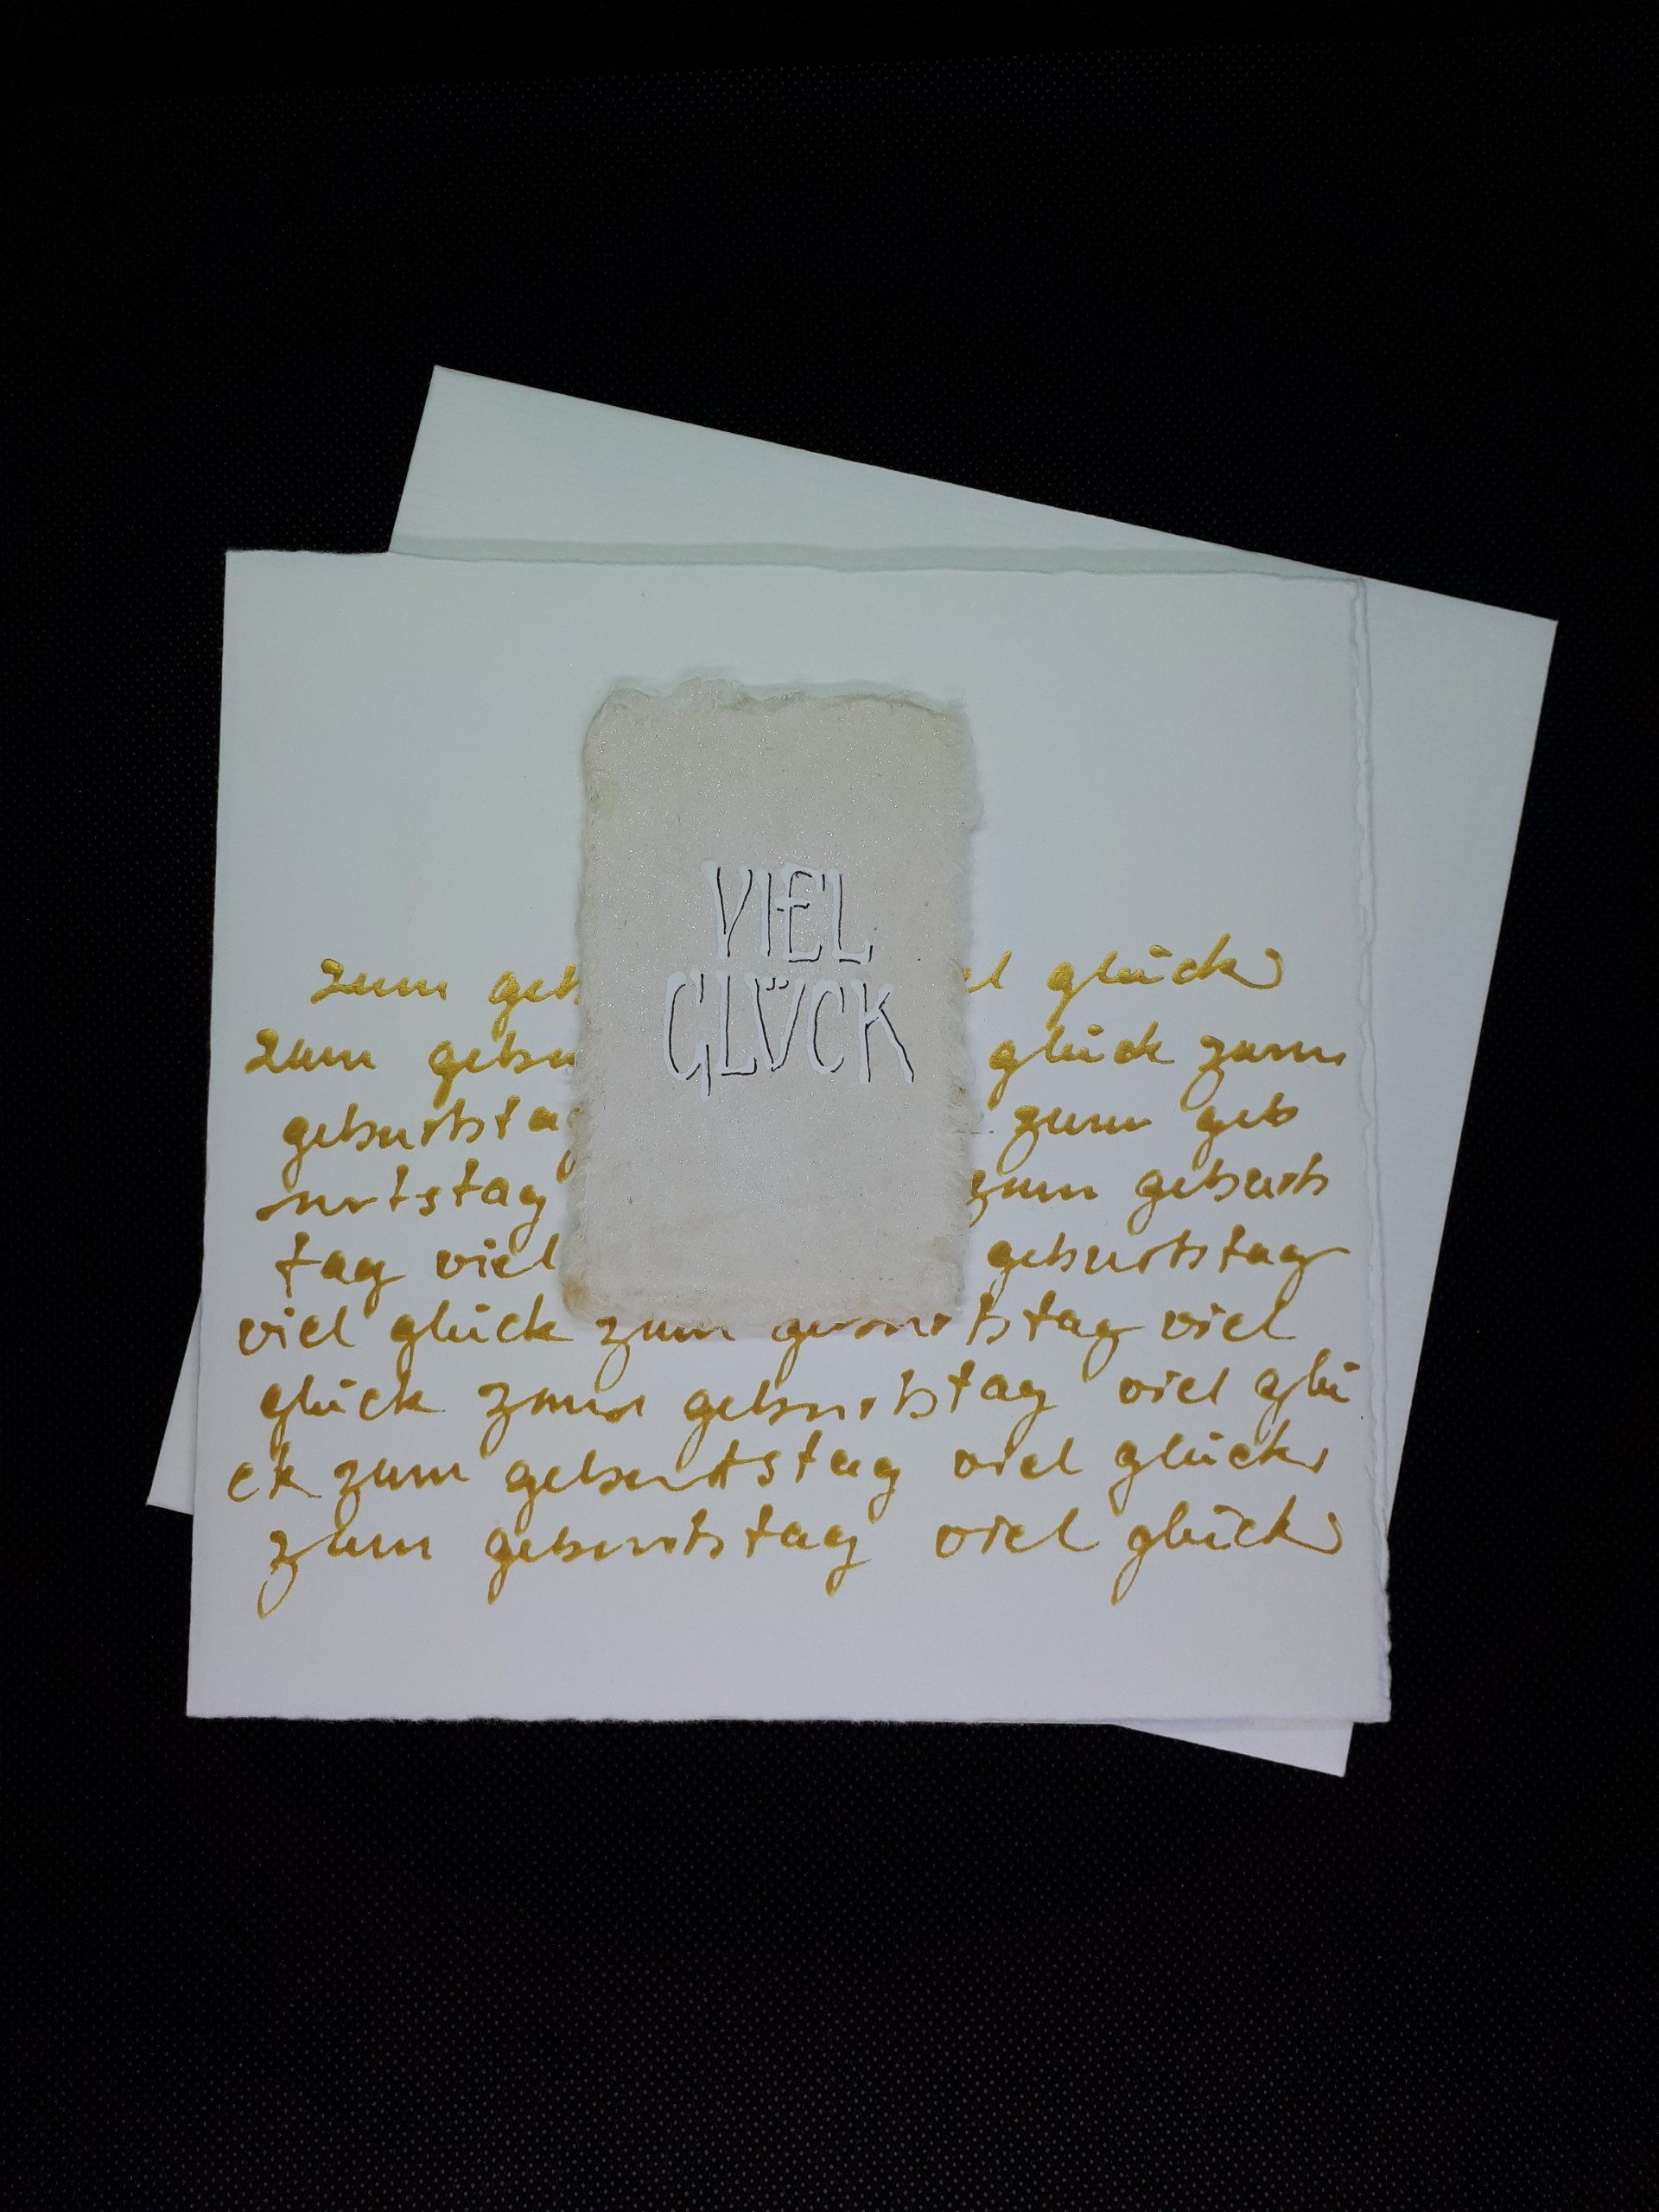 VIEL
GLÜCK
zum geb el glück
zum gebu glück zum
geburtsta zum geb
urtstag zum geburts
tag viel geburtstag
viel glück zum geburtstag viel
glück zum geburtstag viel glü
ck zum geburtstag viel glück
zum geburtstag viel glück